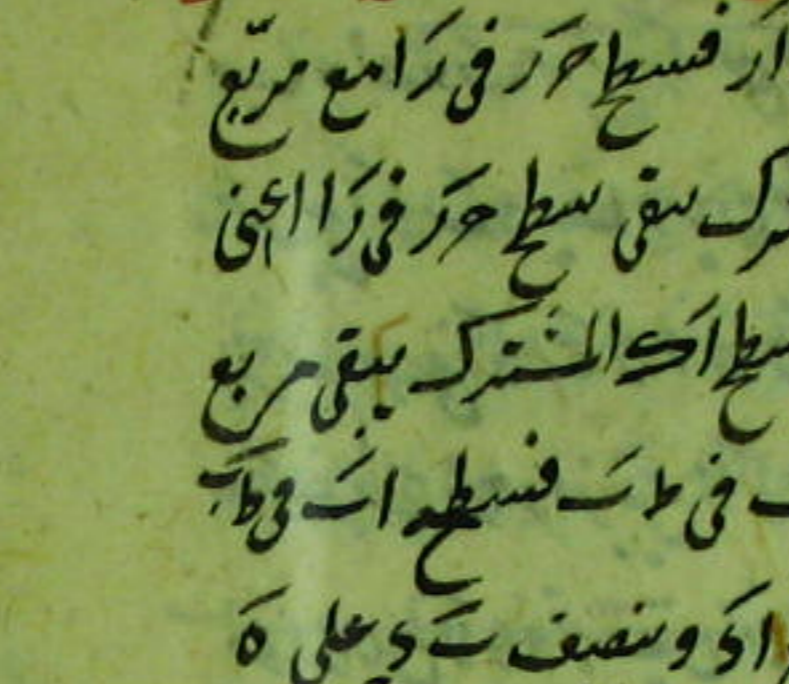 ار فسطح حر في را مع مربع
سقى سطح حر في را اعنى
سطح اك المشترك يبقى مربع
في ط ب فسطح اب في طب
اد و ننصف ب د على ه